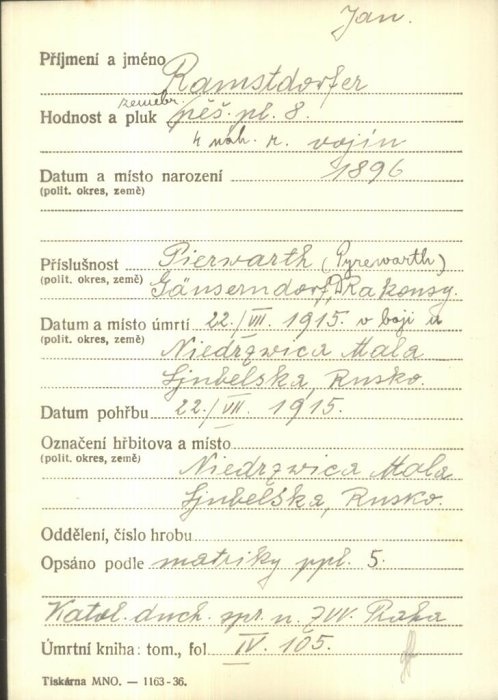 Jan.
Příjmení a jméno Ramstdorfer
zeměbr.
Hodnost a pluk pěš. pl. 8.
4 náh. r. vojín
Datum a místo narození 1896
(polit. okres, země)
Příslušnost Pierwarth (Pyrewarth)
(polit. okres, země) Gänserndorf, D. Rakousy.
Datum a místo úmrtí 22./VII. 1915 v boji u
(polit. okres, země) Niedrzwica Mala
Ljubelska, Rusko.
Datum pohřbu 22./VII. 1915.
Označení hřbitova a místo
(polit. okres, země) Niedrzwica Mala
Ljubelska, Rusko.
Oddělení, číslo hrobu
Opsáno podle matriky ppl. 5.
Katol. duch. spr. u ZVV. Praha
Úmrtní kniha: tom., fol IV. 105.
Tiskárna MNO. — 1163-36.